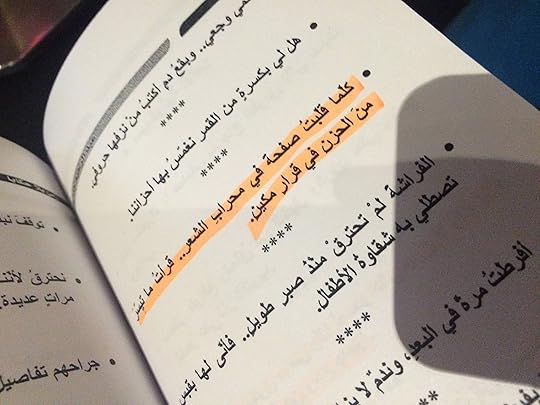 وجعي.. وبقعُ دم اكتبُ منْ نزفها حروفي.
****
• هل لي بكسرةٍ من القمر نغمّسُ بها أحزاننا.
****
• كلما قلبتُ صفحة في محراب الشعر.. قرأتُ ما تيسر
منَ الحزن في قرار مكين.
****
• الفراشة لمْ تحترقْ منذُ صبر طويل.. فأنّى لها بقبس
تصطلي به شقاوة الأطفال.
****
افرطتُ مرة في البعد، وندمٌ لا
****
• توقفَ
• نحترقُ
مراتٍ عديدة
• جراحهم تفاصيل